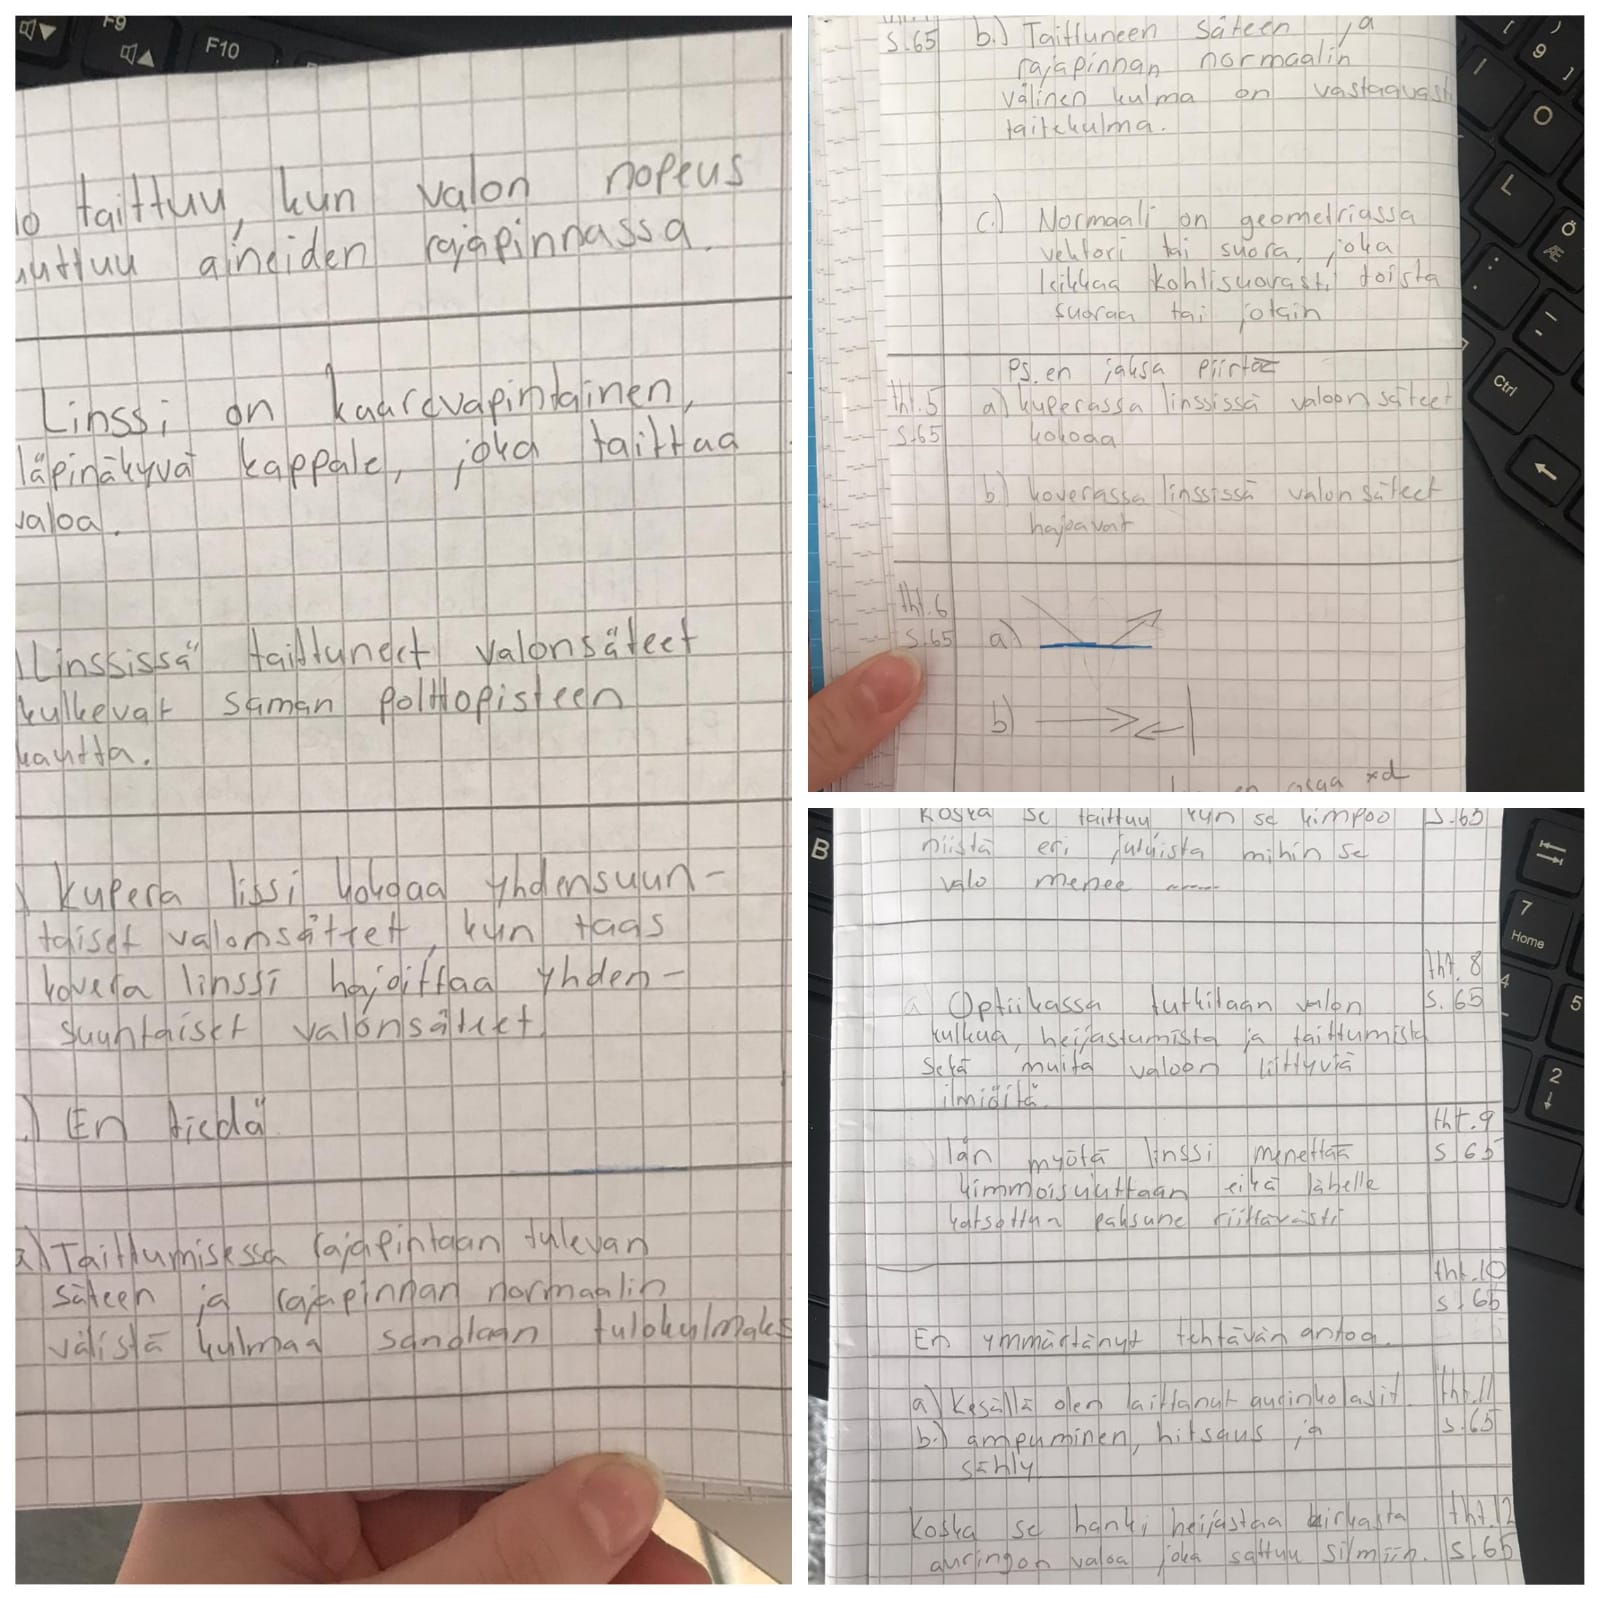 F9
F10
taittuu, kun valon nopeus
aineiden rajapinnassa.
Linssi on kaarevapintainen,
läpinäkyvä kappale, joka taittaa
valoa.
Linssissä taittuneet valonsäteet
kulkevat saman polttopisteen
kautta.
Kupera lissi kokoaa yhdensuun-
taiset valonsätteet, kun taas
kovera linssi hajoittaa yhden-
suuntaiset valonsäteet.
En tiedä
a) Taittumisessa rajapintaan tulevan
säteen ja rajapinnan normaalin
välistä kulmaa sanotaan tulokulmaks
s.65 b.) Taittuneen säteen ja
rajapinnan normaalin
välinen kulma on vastaavasti
taitekulma.
c.) Normaali on geometriassa
vektori tai suora, joka
leikkaa kohtisuorasti toista
suoraa tai jotain
Ps. en jaksa piirtää
tht.5 a) kuperassa linssissä valon säteet
s.65 kokoaa
b) koverassa linssissä valon säteet
hajoavat
tht.6
s.65 a)
b)
en osaa xd
9
O
L
Ö
Æ
Ctrl
Koska se taittuu kun se kimpoo s.65
niistä eri jutuista mihin se
valo menee
tht. 8
a Optiikassa tutkitaan valon s. 65
kulkua, heijastumista ja taittumista
sekä muita valoon liittyviä
ilmiöitä.
tht.9
Iän myötä linssi menettää s 65
kimmoisuuttaan eikä lähelle
katsottun paksune riittävästi
tht.10
s. 65
En ymmärtänyt tehtävän antoa.
a) Kesällä olen laittanut aurinkolasit. tht.11
b.) ampuminen, hitsaus ja s.65
sähly
Koska se hanki heijastaa kirkasta tht.12
auringon valoa joka sattuu silmiin. s.65
B
7
Home
4
5
2